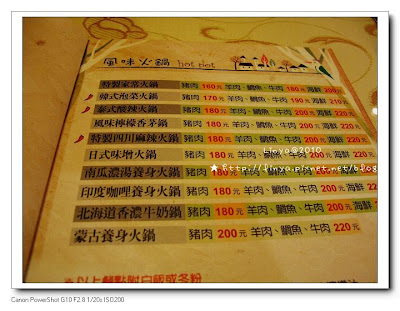 風味火鍋 hot riot
特製家常火鍋 豬肉 160元 羊肉、鯛魚、牛肉 180元 海鮮 200元
韓式泡菜火鍋 豬肉 170元 羊肉、鯛魚、牛肉 190元 海鮮 210元
泰式酸辣火鍋 豬肉 180元 羊肉、鯛魚、牛肉 200元 海鮮 220元
風味檸檬香茅鍋 豬肉 180元 羊肉、鯛魚、牛肉 200元 海鮮 220元
特製四川麻辣火鍋 豬肉 180元 羊肉、鯛魚、牛肉 200元 海鮮 220元
日式味增火鍋 豬肉 180元 羊肉、鯛魚、牛肉 200元
Linya@2010
南瓜濃湯養身火鍋 豬肉 180元 羊肉
★Http://linya.pixnet.net/blog
印度咖哩養身火鍋 豬肉 180元 羊肉、鯛魚、牛肉 200元 海鮮
北海道香濃牛奶鍋 豬肉 180元 羊肉、鯛魚、牛肉 200元 海鮮
蒙古養身火鍋 豬肉 180元 羊肉、鯛魚、牛肉 220元
※以上餐點附白飯或冬粉
Canon PowerShot G10 F2.8 1/20s ISO200